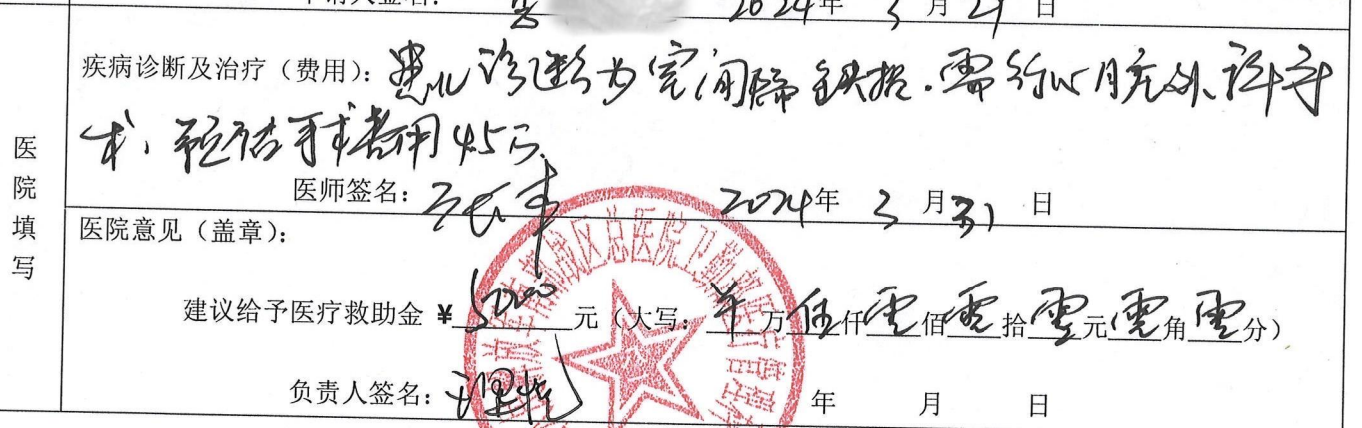 申请人签名： 2024年 3月21日
疾病诊断及治疗（费用）：患儿诊断为室间隔缺损.需行心脏外科手
术，预估手术费用4.5万.
医师签名： 2024年 3月 日
医院填写
医院意见（盖章）：
建议给予医疗救助金￥5000元（大写： 万伍仟零佰零拾零元零角零分）
负责人签名： 年 月 日
南战区总医院卫勤部医疗管理科